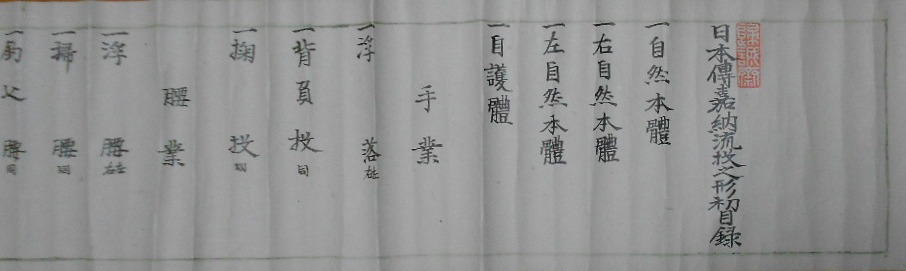 日本傳嘉納流投之形初目録
一自然本體
一右自然本體
一左自然本體
一自護體
手業
一浮落 左右
一背負投 同
一掬投 同
腰業
一浮腰 左右
一掃腰 同
一釣込腰 同